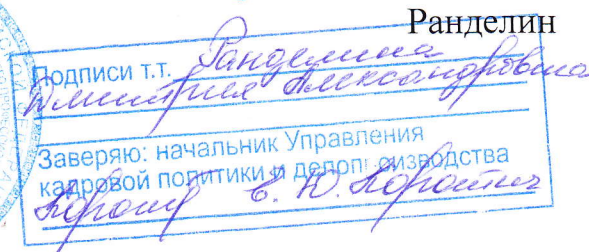 Ранделин
Подписи т.т. Ранделина
Дмитрия Александровича
Заверяю: начальник Управления
кадровой политики и делопроизводства
Е. Ю. Коротич